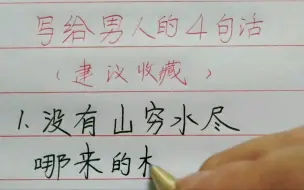 写给男人的4句话
(建议收藏)
1.没有山穷水尽
哪来的